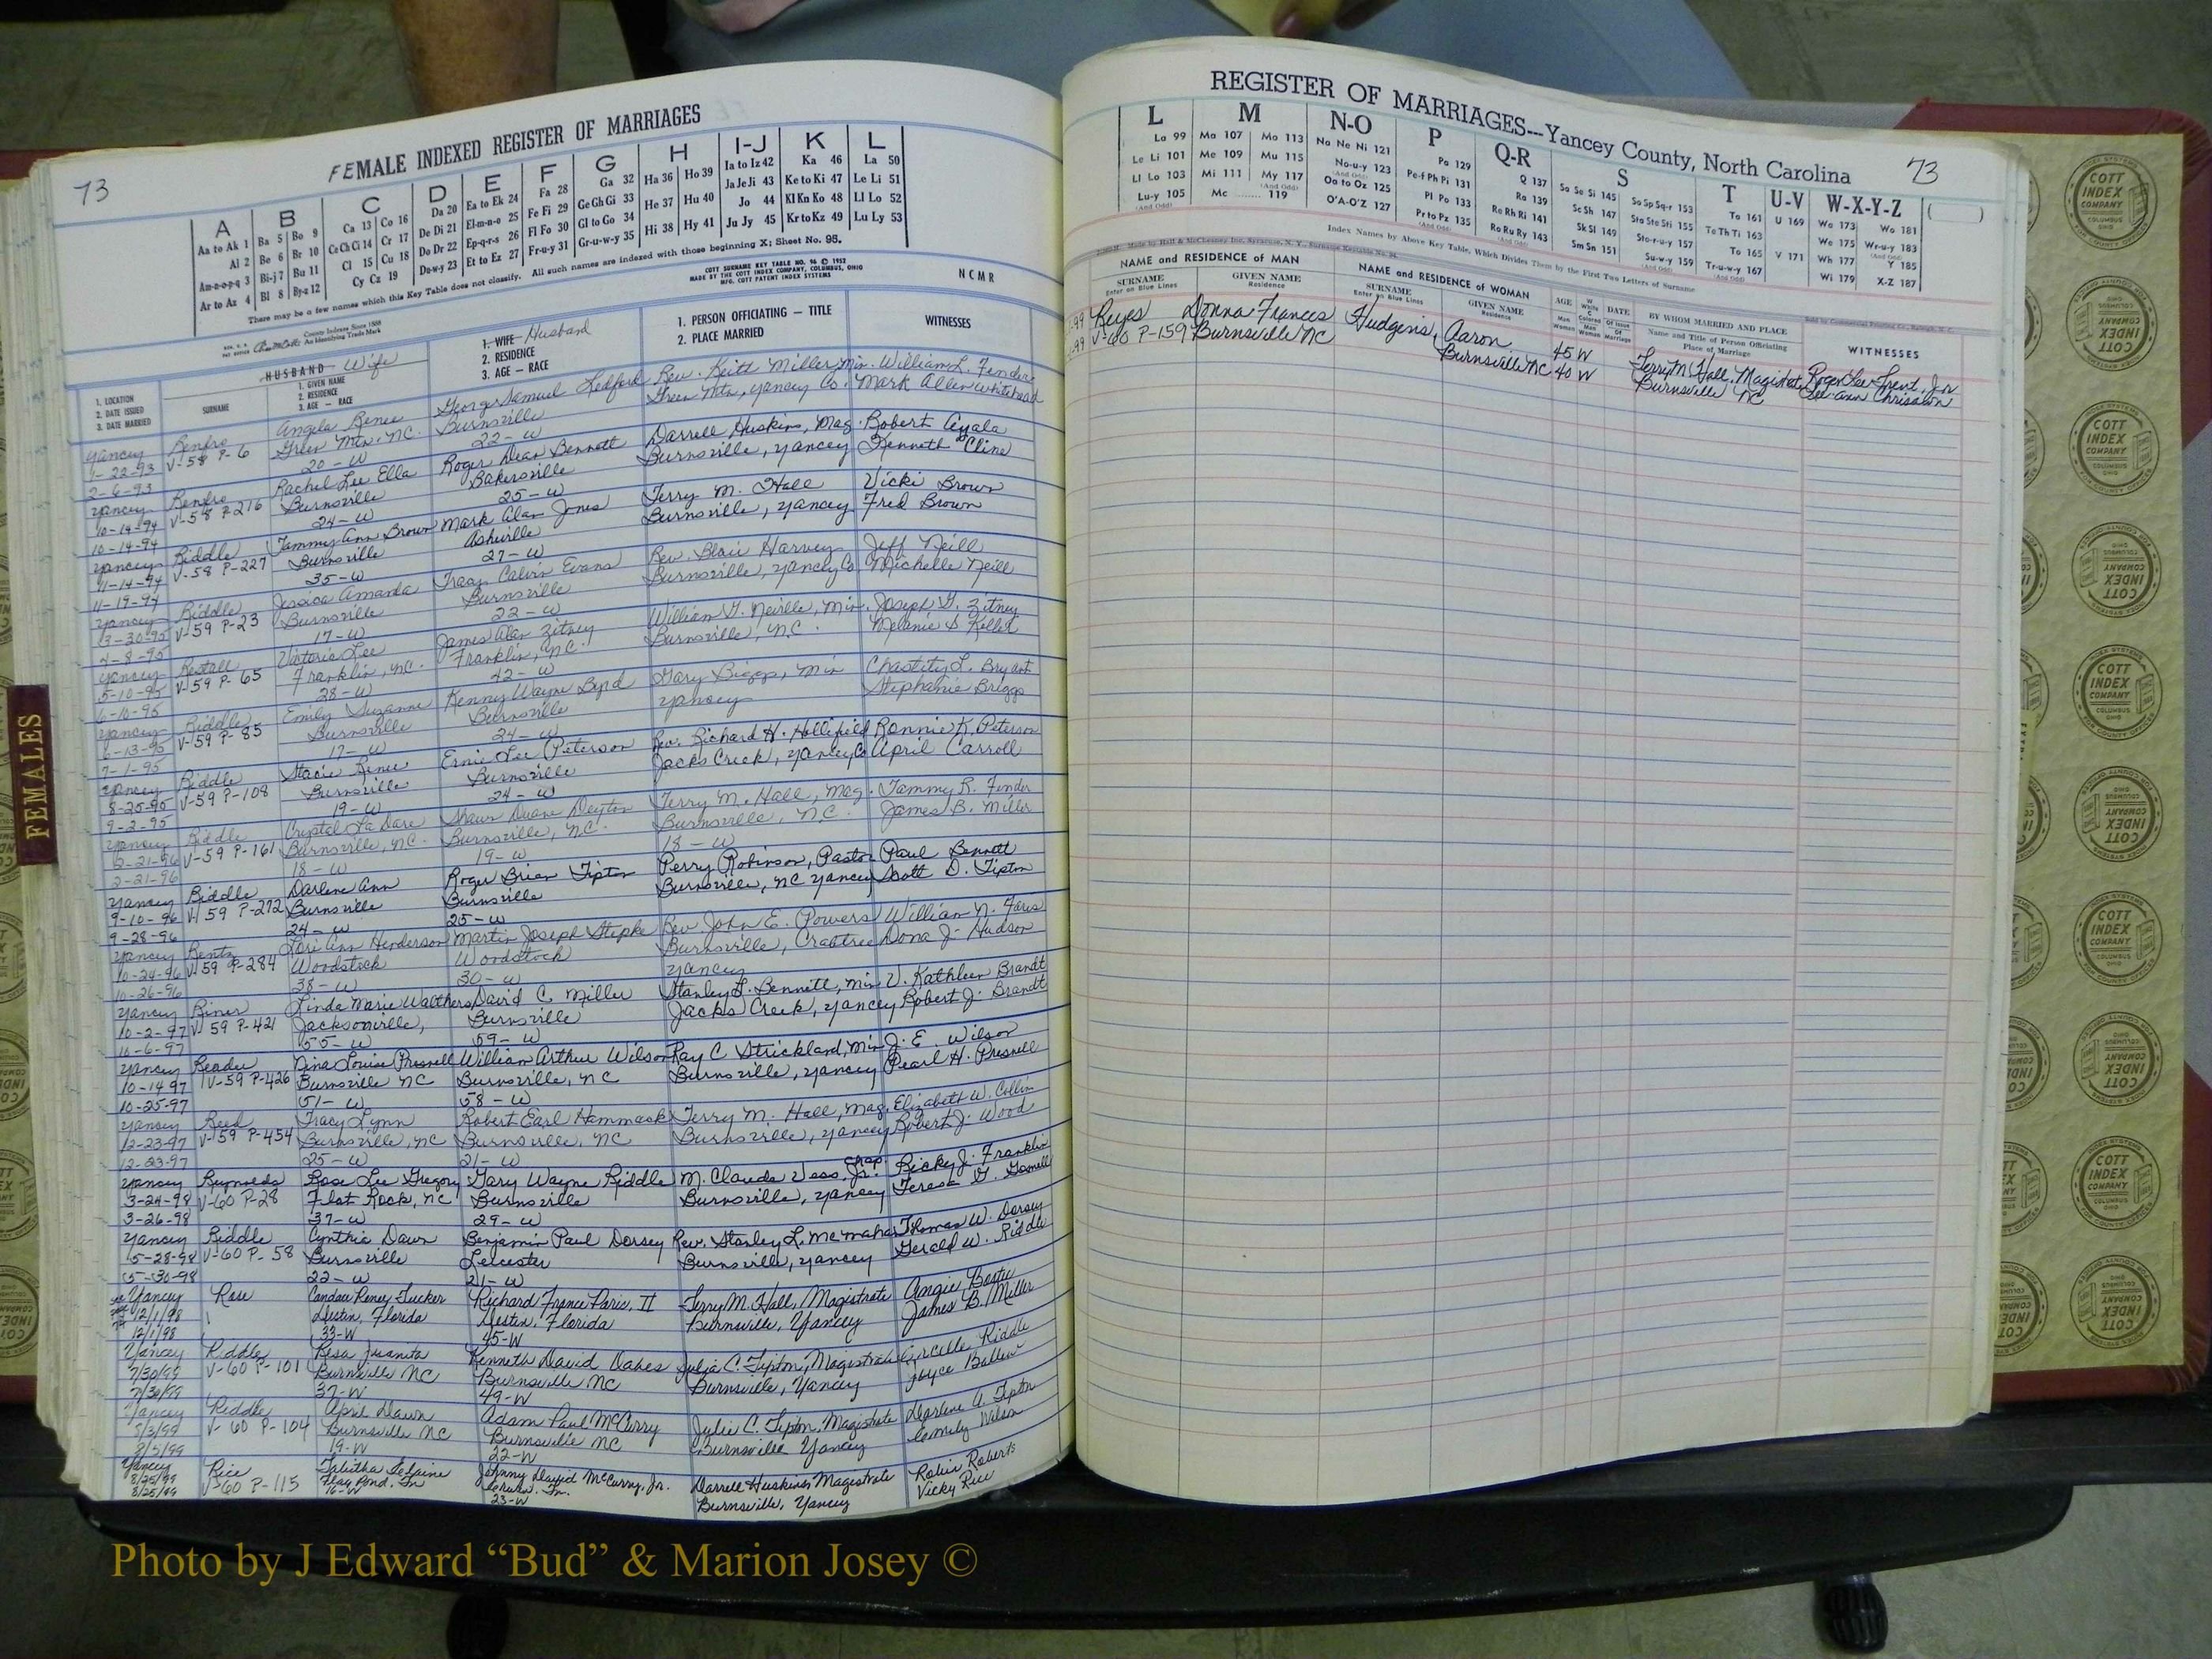 73
FEMALE INDEXED REGISTER OF MARRIAGES
A B C D E F G H I-J K L
Aa to Ak 1 Ba 5 Bo 9 Ca 13 Co 16 Da 20 Ea to Ek 24 Fa 28 Ga 32 Ha 36 Ho 39 Ia to Iz 42 Ka 46 La 50
Al 2 Be 6 Br 10 Ce Ch Ci 14 Cr 17 De Di 21 El-m-n-o 25 Fe Fi 29 Ge Gh Gi 33 He 37 Hu 40 Ja Je Ji 43 Ke to Ki 47 Le Li 51
Am-n-o-p-q 3 Bi-j 7 Bu 11 Cl 15 Cu 18 Do Dr 22 Ep-q-r-s 26 Fl Fo 30 Gl to Go 34 Hi 38 Hy 41 Jo 44 Kl Kn Ko 48 Ll Lo 52
Ar to Az 4 Bl 8 By-z 12 Cy Cz 19 Du-w-y 23 Et to Ez 27 Fr-u-y 31 Gr-u-w-y 35 Ju Jy 45 Kr to Kz 49 Lu Ly 53
There may be a few names which this Key Table does not classify. All such names are indexed with those beginning X; Sheet No. 95.
COTT SURNAME KEY TABLE NO. 96 © 1952
MADE BY THE COTT INDEX COMPANY, COLUMBUS, OHIO
MFG. COTT PATENT INDEX SYSTEMS
NCMR
County Indexes Since 1888
An Identifying Trade Mark
1. LOCATION
2. DATE ISSUED
3. DATE MARRIED
HUSBAND Wife
SURNAME
1. GIVEN NAME
2. RESIDENCE
3. AGE — RACE
1. WIFE Husband
2. RESIDENCE
3. AGE — RACE
1. PERSON OFFICIATING — TITLE
2. PLACE MARRIED
WITNESSES
Yancey Renfro Angela Renee George Samuel Ledford Rev. Keith Miller, Min. William L. Fender
1-22-93 V-58 P-6 Green Mtn. NC. Burnsville Green Mtn, Yancey Co. Mark Allen Whitehead
2-6-93 20-W 22-W
Yancey Renfro Rachel Lee Ella Roger Dean Bennett Darrell Huskins, Mag. Robert Ayala
10-14-94 V-58 P-216 Burnsville Bakersville Burnsville, Yancey Kenneth Cline
10-14-94 24-W 25-W
Yancey Riddle Tammy Ann Brown Mark Alan Jones Terry M. Hall Vicki Brown
11-14-94 V-58 P-227 Burnsville Asheville Burnsville, Yancey Fred Brown
11-19-94 35-W 27-W
Yancey Riddle Jessica Amanda Tracy Calvin Evans Rev. Blair Harvey Jeff Neill
3-30-95 V-59 P-23 Burnsville Burnsville Burnsville, Yancey Co Michelle Neill
4-8-95 17-W 22-W
Yancey Restall Victoria Lee James Alan Zitney William G. Neville, Min. Joseph G. Zitney
5-10-95 V-59 P-65 Franklin, NC. Franklin, NC. Burnsville, NC. Melanie S Kellet
6-10-95 28-W 42-W
Yancey Riddle Emily Suzanne Kenny Wayne Byrd Gary Biggs, Min Chastity L. Bryant
6-13-95 V-59 P-85 Burnsville Burnsville Yancey Stephanie Briggs
7-1-95 17-W 24-W
Yancey Riddle Stacie Renee Ernie Lee Peterson Rev. Richard H. Hollifield Ronnie K. Peterson
8-25-95 V-59 P-108 Burnsville Burnsville Jacks Creek, Yancey Co April Carroll
9-2-95 19-W 24-W
Yancey Riddle Crystal La Dare Shawn Duane Deyton Terry M. Hall, Mag. Tammy R. Fender
2-21-96 V-59 P-161 Burnsville, NC. Burnsville, NC. Burnsville, NC. James B. Miller
2-21-96 18-W 19-W 18-W
Yancey Riddle Darlene Ann Roger Brian Tipton Perry Robinson, Pastor Paul Bennett
9-10-96 V-59 P-272 Burnsville Burnsville Burnsville, NC Yancey Scott D. Tipton
9-28-96 24-W 25-W
Yancey Rentz Lori Ann Henderson Martin Joseph Stipke Rev. John E. Powers William N. Faris
10-24-96 V-59 P-284 Woodstock Woodstock Burnsville, Crabtree Dona J. Hudson
10-26-96 38-W 30-W Yancey
Yancey Riner Linda Marie Walthers David C. Miller Stanley F. Bennett, Min V. Kathleen Brandt
10-2-97 V-59 P-421 Jacksonville, Burnsville Jacks Creek, Yancey Robert J. Brandt
10-6-97 55-W 59-W
Yancey Reader Nina Louise Presnell William Arthur Wilson Ray C Strickland, Min J. E. Wilson
10-14-97 V-59 P-426 Burnsville NC Burnsville, NC Burnsville, Yancey Pearl H. Presnell
10-25-97 51-W 58-W
Yancey Reed Tracy Lynn Robert Earl Hammack Terry M. Hall, Mag. Elizabeth W. Collin
12-23-97 V-59 P-454 Burnsville, NC Burnsville, NC Burnsville, Yancey Robert J. Wood
12-23-97 25-W 21-W
Yancey Reynolds Rose Lee Gregory Gary Wayne Riddle M. Claude Vess, Jr. Chap. Ricky J. Franklin
3-24-98 V-60 P-28 Flat Rock, NC Burnsville Burnsville, Yancey Teresa G. Gosnell
3-26-98 37-W 29-W
Yancey Riddle Cynthia Dawn Benjamin Paul Dorsey Rev. Stanley L. McMahan Thomas W. Dorsey
5-28-98 V-60 P-58 Burnsville Leicester Burnsville, Yancey Gerald W. Riddle
5-30-98 22-W 21-W
Yancey Rose Candace Reney Tucker Richard France Paris, II Terry M. Hall, Magistrate Angie Boster
12/1/98 Destin, Florida Destin, Florida Burnsville, Yancey James B. Miller
12/1/98 33-W 45-W
Yancey Riddle Resa Juanita Kenneth David Oakes Julia C. Tipton, Magistrate Arcille Riddle
7/30/99 V-60 P-101 Burnsville NC Burnsville NC Burnsville, Yancey Joyce Ballew
7/30/99 37-W 49-W
Yancey Riddle April Dawn Adam Paul McCurry Julie C. Tipton, Magistrate Darlene A. Tipton
8/3/99 V-60 P-104 Burnsville NC Burnsville NC Burnsville Yancey Emily Wilson
8/5/99 19-W 22-W
Yancey Rice Tabitha Johnny David McCurry, Jr. Darrell Huskins Magistrate Robin Roberts
8/25/99 V-60 P-115 Flag Pond, Tn Erwin, Tn. Burnsville, Yancey Vicky Rice
8/25/99 16-W 23-W
FEMALES
REGISTER OF MARRIAGES---Yancey County, North Carolina
73
L M N-O P Q-R S T U-V W-X-Y-Z ( )
La 99 Ma 107 Mo 113 Na Ne Ni 121 Pa 129 Q 137 Sa Se Si 145 So Sp Sq-r 153 Ta 161 U 169 Wa 173 Wo 181
Le Li 101 Me 109 Mu 115 No-u-y 123 Pe-f Ph Pi 131 Ra 139 Sc Sh 147 Sta Ste Sti 155 Te Th Ti 163 We 175 Wr-u-y 183
Ll Lo 103 Mi 111 My 117 Oa to Oz 125 Pl Po 133 Re Rh Ri 141 Sk Sl 149 Sto-r-u-y 157 To 165 V 171 Wh 177 Y 185
Lu-y 105 Mc 119 O'A-O'Z 127 Pr to Pz 135 Ro Ru Ry 143 Sm Sn 151 Su-w-y 159 Tr-u-w-y 167 Wi 179 X-Z 187
Index Names by Above Key Table, Which Divides Them by the First Two Letters of Surname
NAME and RESIDENCE OF MAN
SURNAME
Enter on Blue Lines
GIVEN NAME
Residence
NAME and RESIDENCE of WOMAN
SURNAME
Enter on Blue Lines
GIVEN NAME
Residence
AGE
Man
Woman
DATE
Of Issue
Of Marriage
BY WHOM MARRIED AND PLACE
Name and Title of Person Officiating
Place of Marriage
WITNESSES
Reyes Donna Frances Hudgins, Aaron 45 W Terry M. Hall, Magistrate Roger Lee Trent, Jr
V-60 P-159 Burnsville NC Burnsville NC 40 W Burnsville NC Lee-Ann Chrisawn
COTT INDEX COMPANY
COLUMBUS OHIO
Photo by J Edward “Bud” & Marion Josey ©